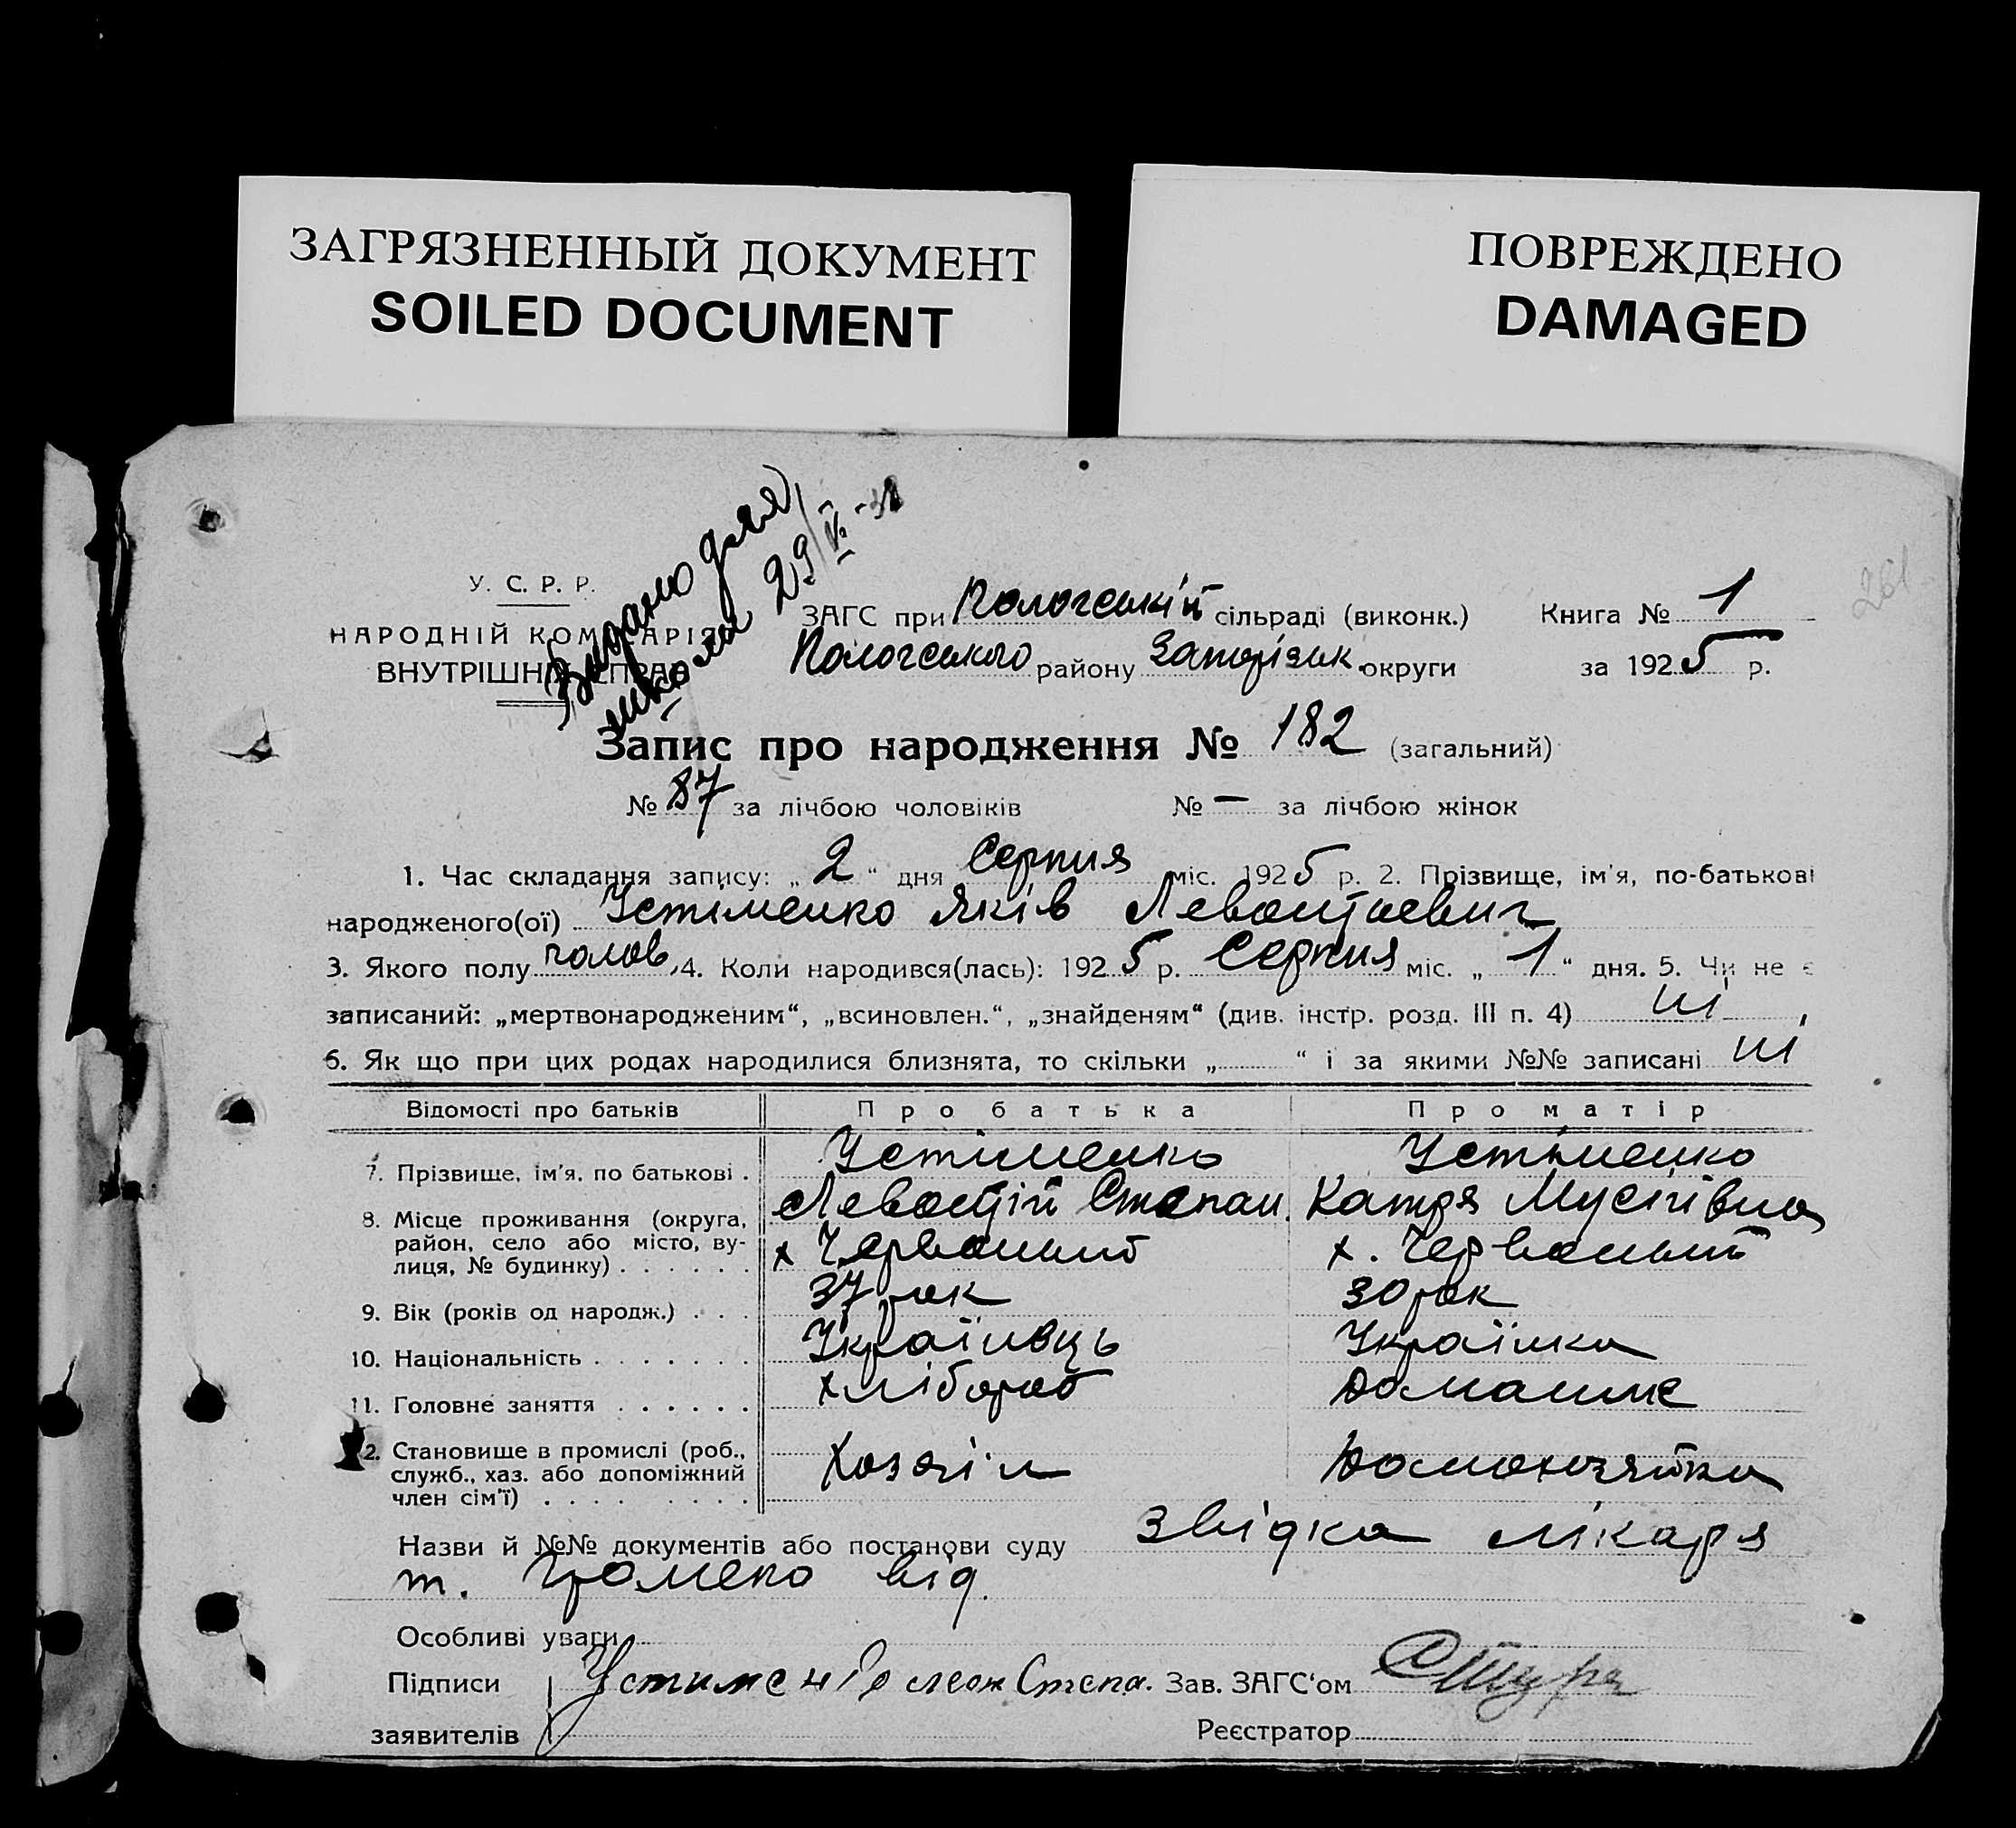 ЗАГРЯЗНЕННЫЙ ДОКУМЕНТ
SOILED DOCUMENT
ПОВРЕЖДЕНО
DAMAGED
Видано для
школи 29/
261
У. С. Р. Р.
НАРОДНІЙ КОМІСАРІЯТ
ВНУТРІШНІХ СПРАВ
ЗАГС при Пологській сільраді (виконк.) Книга № 1
Пологського району Запоріжж. округи за 1925 р.
Запис про народження № 182 (загальний)
№ 87 за лічбою чоловіків № — за лічбою жінок
1. Час складання запису: „ 2 “ дня Серпня міс. 1925 р. 2. Прізвище, ім'я, по-батькові
народженого(ої) Устіменко Яків Левонтиевич
3. Якого полу чолов. 4. Коли народився(лась): 1925 р. Серпня міс. „ 1 “ дня. 5. Чи не є
записаний: „мертвонародженим“, „всиновлен.“, „знайденям“ (див. інстр. розд. III п. 4) ні
6. Як що при цих родах народилися близнята, то скільки „ “ і за якими №№ записані ні
Відомості про батьків Про батька Про матір
7. Прізвище, ім'я, по батькові . Устіменко Устіменко
Левонтій Степан. Катря Мусіївна
8. Місце проживання (округа, район, село або місто, вулиця, № будинку) . . . . . . х Червоный х. Червоный
9. Вік (років од народж.) . . . 37 рок 30 рок
10. Національність . . . . . . . Українець Українка
11. Головне заняття . . . . . . хлібороб домашнє
12. Становище в промислі (роб., служб., хаз. або допоміжний член сім'ї) . . . . . . . . Хозяїн Домохозяйка
Назви й №№ документів або постанови суду звідка лікаря
т. Громеко від.
Особливі уваги
Підписи Устименко Леон Степа. Зав. ЗАГС'ом
заявителів Реєстратор